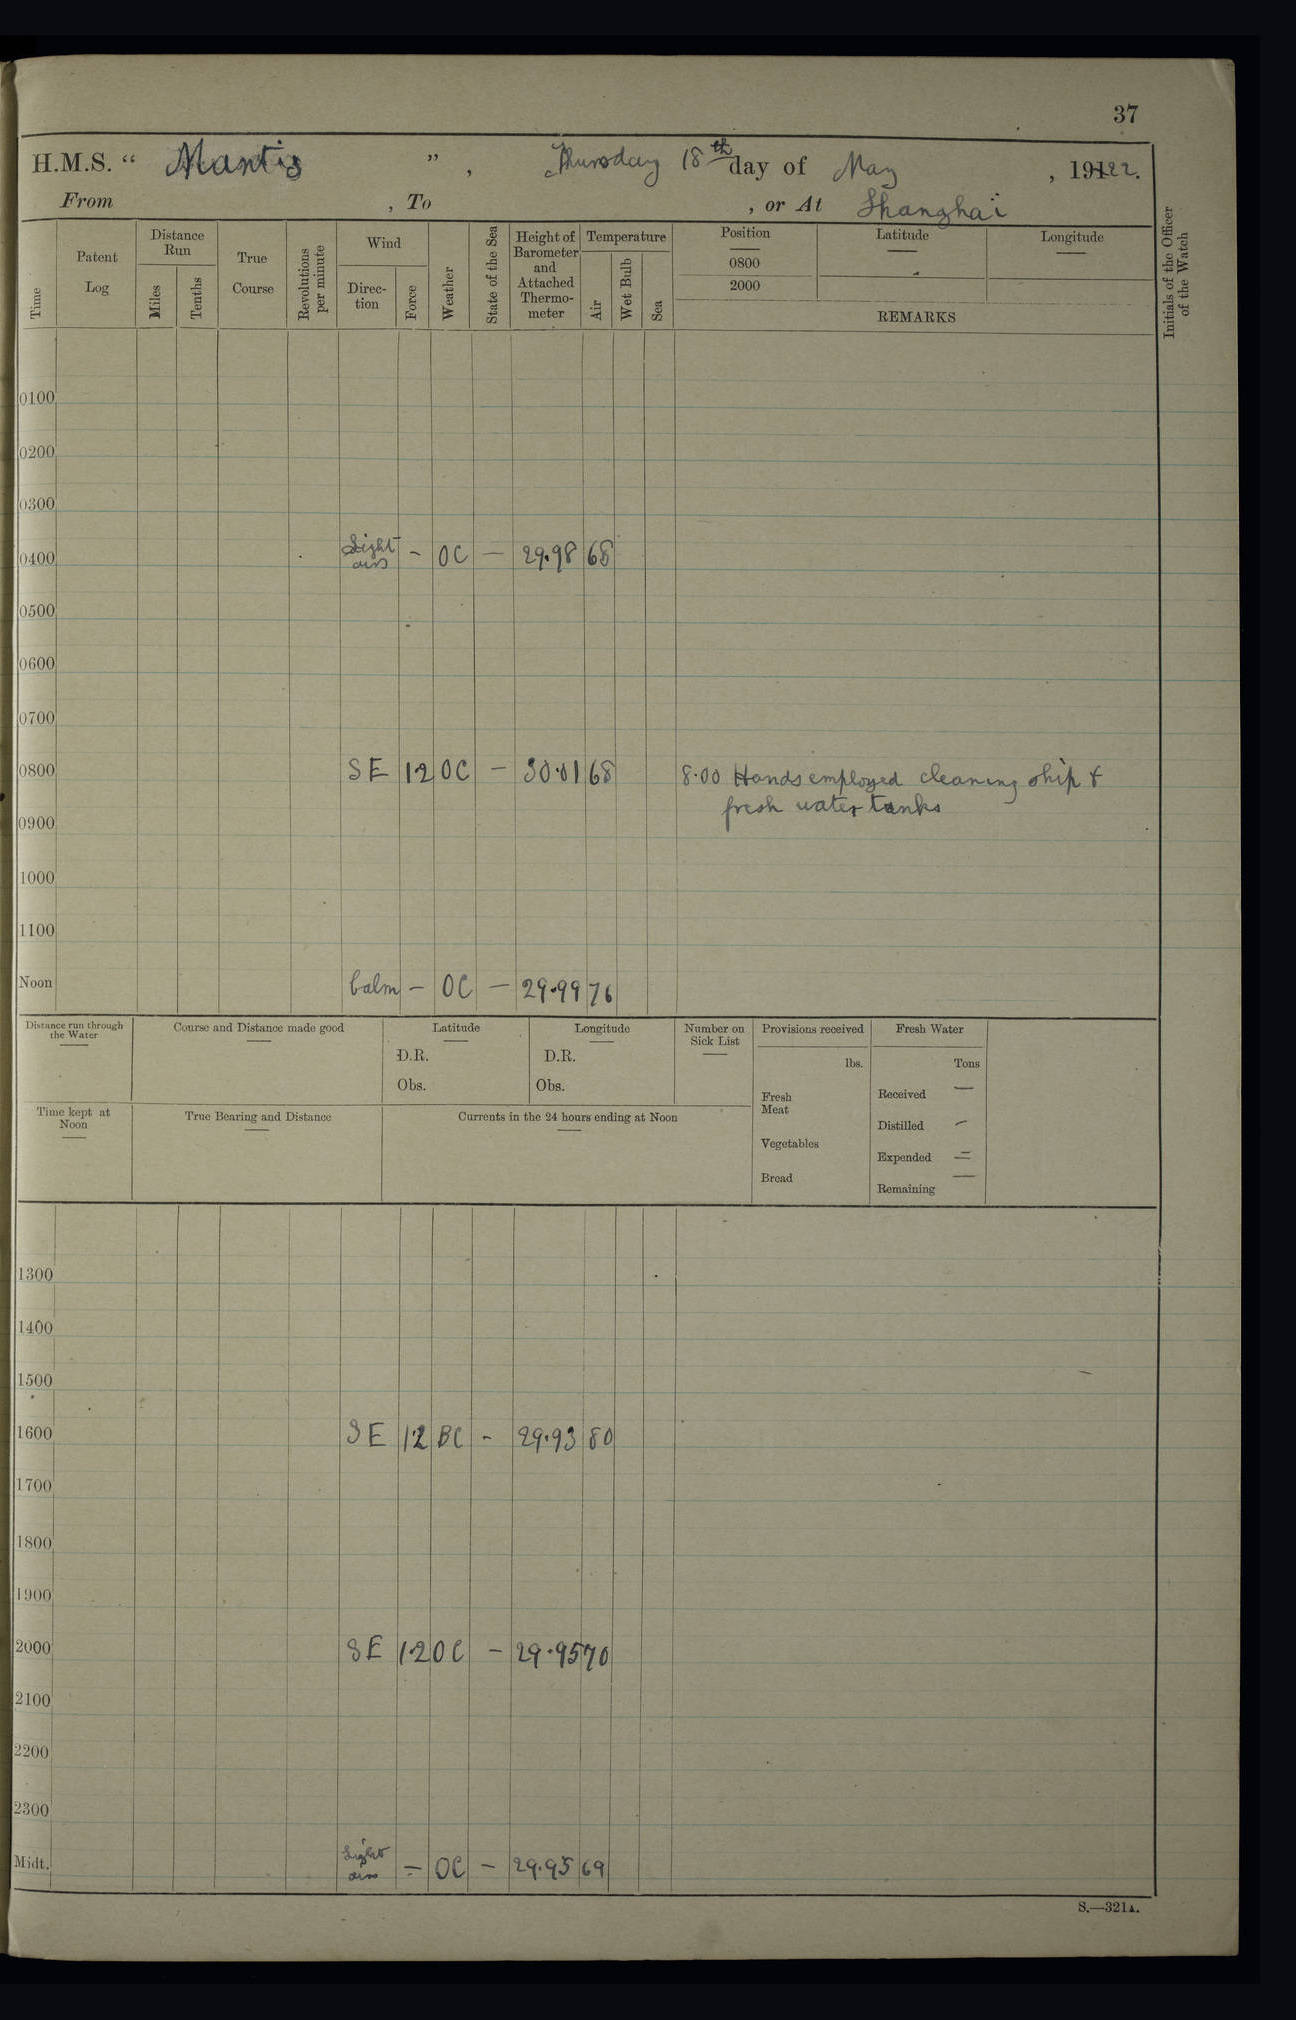 37
H.M.S. “ Mantis ” , Thursday 18th day of May , 19122.
From , To , or At Shanghai
Time
Patent Log
Distance Run
Miles
Tenths
True Course
Revolutions per minute
Wind
Direc- tion
Force
Weather
State of the Sea
Height of Barometer and Attached Thermo- meter
Temperature
Air
Wet Bulb
Sea
Position
0800
2000
Latitude
Longitude
REMARKS
Initials of the Officer of the Watch
0100
0200
0300
0400 Light airs – OC – 29.98 68
0500
0600
0700
0800 SE 1.2 OC – 30.01 68 8.00 Hands employed cleaning ship &
fresh water tanks
0900
1000
1100
Noon Calm – OC – 29.99 76
Distance run through the Water
Course and Distance made good
Latitude
D.R.
Obs.
Longitude
D.R.
Obs.
Number on Sick List
Provisions received
lbs.
Fresh Meat
Vegetables
Bread
Fresh Water
Tons
Received —
Distilled –
Expended =
Remaining —
Time kept at Noon
True Bearing and Distance
Currents in the 24 hours ending at Noon
1300
1400
1500
1600 SE 1.2 BC - 29.93 80
1700
1800
1900
2000 SE 1.2 OC – 29.95 70
2100
2200
2300
Midt. Light airs – OC – 29.95 69
S.—321A.